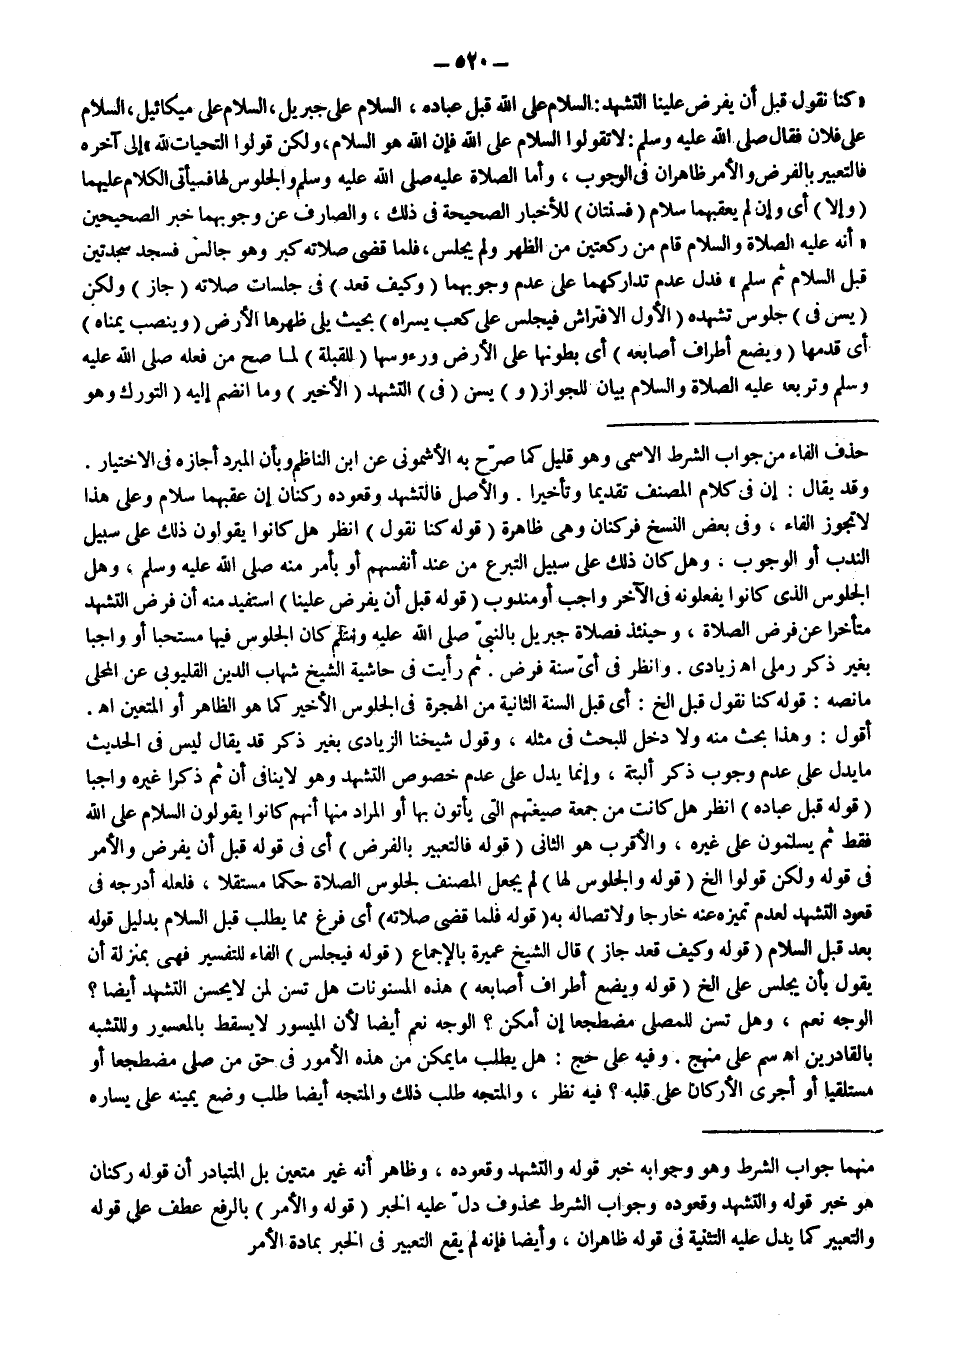 — ٥٢٠ —
« كنا نقول قبل أن يفرض علينا التشهد : السلام على الله قبل عباده ، السلام على جبريل ، السلام على ميكائيل ، السلام
على فلان فقال صلى الله عليه وسلم : لا تقولوا السلام على الله فإن الله هو السلام ، ولكن قولوا التحيات لله » إلى آخره
فالتعبير بالفرض والأمر ظاهران فى الوجوب ، وأما الصلاة عليه صلى الله عليه وسلم والجلوس لها فسيأتى الكلام عليهما
( وإلا ) أى وإن لم يعقبهما سلام ( فسنتان ) للأخبار الصحيحة فى ذلك ، والصارف عن وجوبهما خبر الصحيحين
« أنه عليه الصلاة والسلام قام من ركعتين من الظهر ولم يجلس ، فلما قضى صلاته كبر وهو جالس فسجد سجدتين
قبل السلام ثم سلم » فدل عدم تداركهما على عدم وجوبهما ( وكيف قعد ) فى جلسات صلاته ( جاز ) ولكن
( يسن فى ) جلوس تشهده ( الأول الافتراش فيجلس على كعب يسراه ) بحيث يلى ظهرها الأرض ( وينصب يمناه )
أى قدمها ( ويضع أطراف أصابعه ) أى بطونها على الأرض ورءوسها ( للقبلة ) لما صح من فعله صلى الله عليه
وسلم وتربعه عليه الصلاة والسلام بيان للجواز ( و ) يسن ( فى ) التشهد ( الأخير ) وما انضم إليه ( التورك وهو
حذف الفاء من جواب الشرط الاسمى وهو قليل كما صرّح به الأشمونى عن ابن الناظم وبأن المبرد أجازه فى الاختيار .
وقد يقال : إن فى كلام المصنف تقديما وتأخيرا . والأصل فالتشهد وقعوده ركنان إن عقبهما سلام وعلى هذا
لا تجوز الفاء ، وفى بعض النسخ فركنان وهى ظاهرة ( قوله كنا نقول ) انظر هل كانوا يقولون ذلك على سبيل
الندب أو الوجوب ، وهل كان ذلك على سبيل التبرع من عند أنفسهم أو بأمر منه صلى الله عليه وسلم ، وهل
الجلوس الذى كانوا يفعلونه فى الآخر واجب أو مندوب ( قوله قبل أن يفرض علينا ) استفيد منه أن فرض التشهد
متأخرا عن فرض الصلاة ، وحينئذ فصلاة جبريل بالنبىّ صلى الله عليه وسلم كان الجلوس فيها مستحبا أو واجبا
بغير ذكر رملى اه زيادى . وانظر فى أىّ سنة فرض . ثم رأيت فى حاشية الشيخ شهاب الدين القليوبى عن المحلى
ما نصه : قوله كنا نقول قبل الخ : أى قبل السنة الثانية من الهجرة فى الجلوس الأخير كما هو الظاهر أو المتعين اه .
أقول : وهذا بحث منه ولا دخل للبحث فى مثله ، وقول شيخنا الزيادى بغير ذكر قد يقال ليس فى الحديث
مايدل على عدم وجوب ذكر ألبتة ، وإنما يدل على عدم خصوص التشهد وهو لاينافى أن ثم ذكرا غيره واجبا
( قوله قبل عباده ) انظر هل كانت من جمعة صيغتهم التى يأتون بها أو المراد منها أنهم كانوا يقولون السلام على الله
فقط ثم يسلمون على غيره ، والأقرب هو الثانى ( قوله فالتعبير بالفرض ) أى فى قوله قبل أن يفرض والأمر
فى قوله ولكن قولوا الخ ( قوله والجلوس لها ) لم يجعل المصنف لجلوس الصلاة حكما مستقلا ، فلعله أدرجه فى
قعود التشهد لعدم تميزه عنه خارجا ولاتصاله به ( قوله فلما قضى صلاته ) أى فرغ مما يطلب قبل السلام بدليل قوله
بعد قبل السلام ( قوله وكيف قعد جاز ) قال الشيخ عميرة بالإجماع ( قوله فيجلس ) الفاء للتفسير فهى بمنزلة أن
يقول بأن يجلس على الخ ( قوله ويضع أطراف أصابعه ) هذه المسنونات هل تسن لمن لايحسن التشهد أيضا ؟
الوجه نعم ، وهل تسن للمصلى مضطجعا إن أمكن ؟ الوجه نعم أيضا لأن الميسور لايسقط بالمعسور وللتشبه
بالقادرين اه سم على منهج . وفيه على حج : هل يطلب مايمكن من هذه الأمور فى حق من صلى مضطجعا أو
مستلقيا أو أجرى الأركان على قلبه ؟ فيه نظر ، والمتجه طلب ذلك والمتجه أيضا طلب وضع يمينه على يساره
منهما جواب الشرط وهو وجوابه خبر قوله والتشهد وقعوده ، وظاهر أنه غير متعين بل المتبادر أن قوله ركنان
هو خبر قوله والتشهد وقعوده وجواب الشرط محذوف دلّ عليه الخبر ( قوله والأمر ) بالرفع عطف على قوله
والتعبير كما يدل عليه التثنية فى قوله ظاهران ، وأيضا فإنه لم يقع التعبير فى الخبر بمادة الأمر